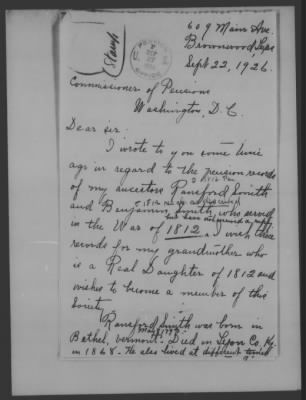 609 Main Ave.
Brownwood, Texas
Sept 22, 1926.
(Stamp)
Commissioner of Pensions
Washington, D. C.
Dear sir:
I wrote to you some time
ago in regard to the pension records
of my ancestors Ransford Smith
and Benjamin Smith, who served
in the War of 1812. I wish these
records for my grandmother who
is a Real Daughter of 1812 and
wishes to become a member of this
Society.
Ransford Smith was born in
Bethel, Vermont. Died in Co, Ky.
in 1868. He also lived at different